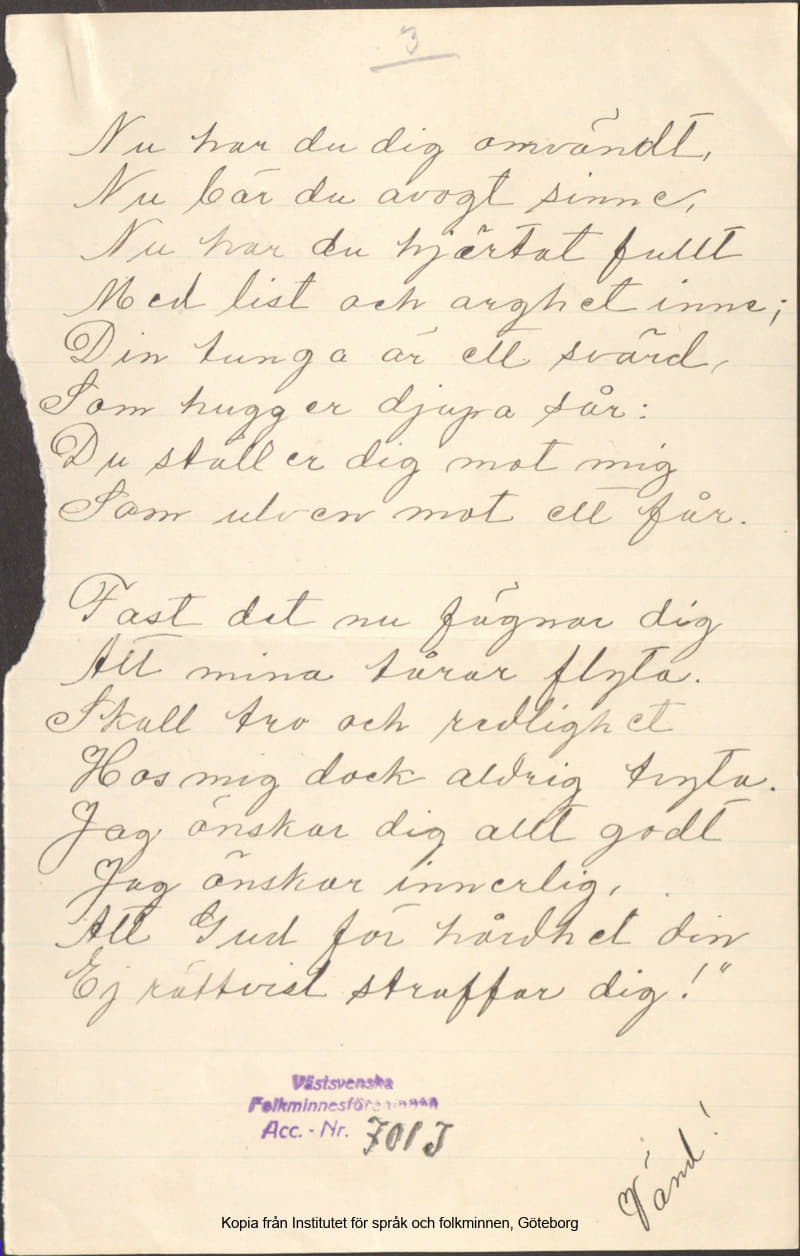 3
Nu har du dig omvändt,
Nu bär du avogt sinne,
Nu har du hjärtat fullt
Med list och arghet inne;
Din tunga är ett svärd,
Som hugger djupa sår:
Du ställer dig mot mig
Som ulven mot ett får.
Fast det nu fägnar dig
Att mina tårar flyta.
Skall tro och redlighet
Hos mig dock aldrig tryta.
Jag önskar dig allt godt
Jag önskar innerlig,
Att Gud för hårdhet din
Ej rättvist straffar dig!"
Västsvenska
Folkminnesföreningen
Acc. - Nr. 701 J
Vänd!
Kopia från Institutet för språk och folkminnen, Göteborg